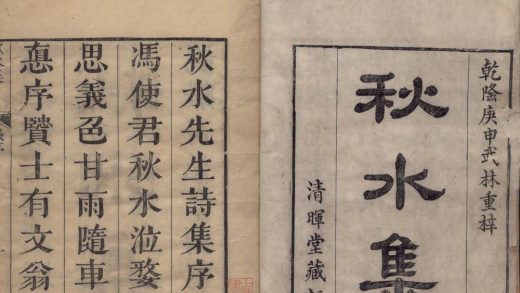 乾隆庚申武林重梓
秋水集
清暉堂藏
秋水先生詩集序
馮使君秋水涖婺
思義邑甘雨隨車
惪序贒士有文翁